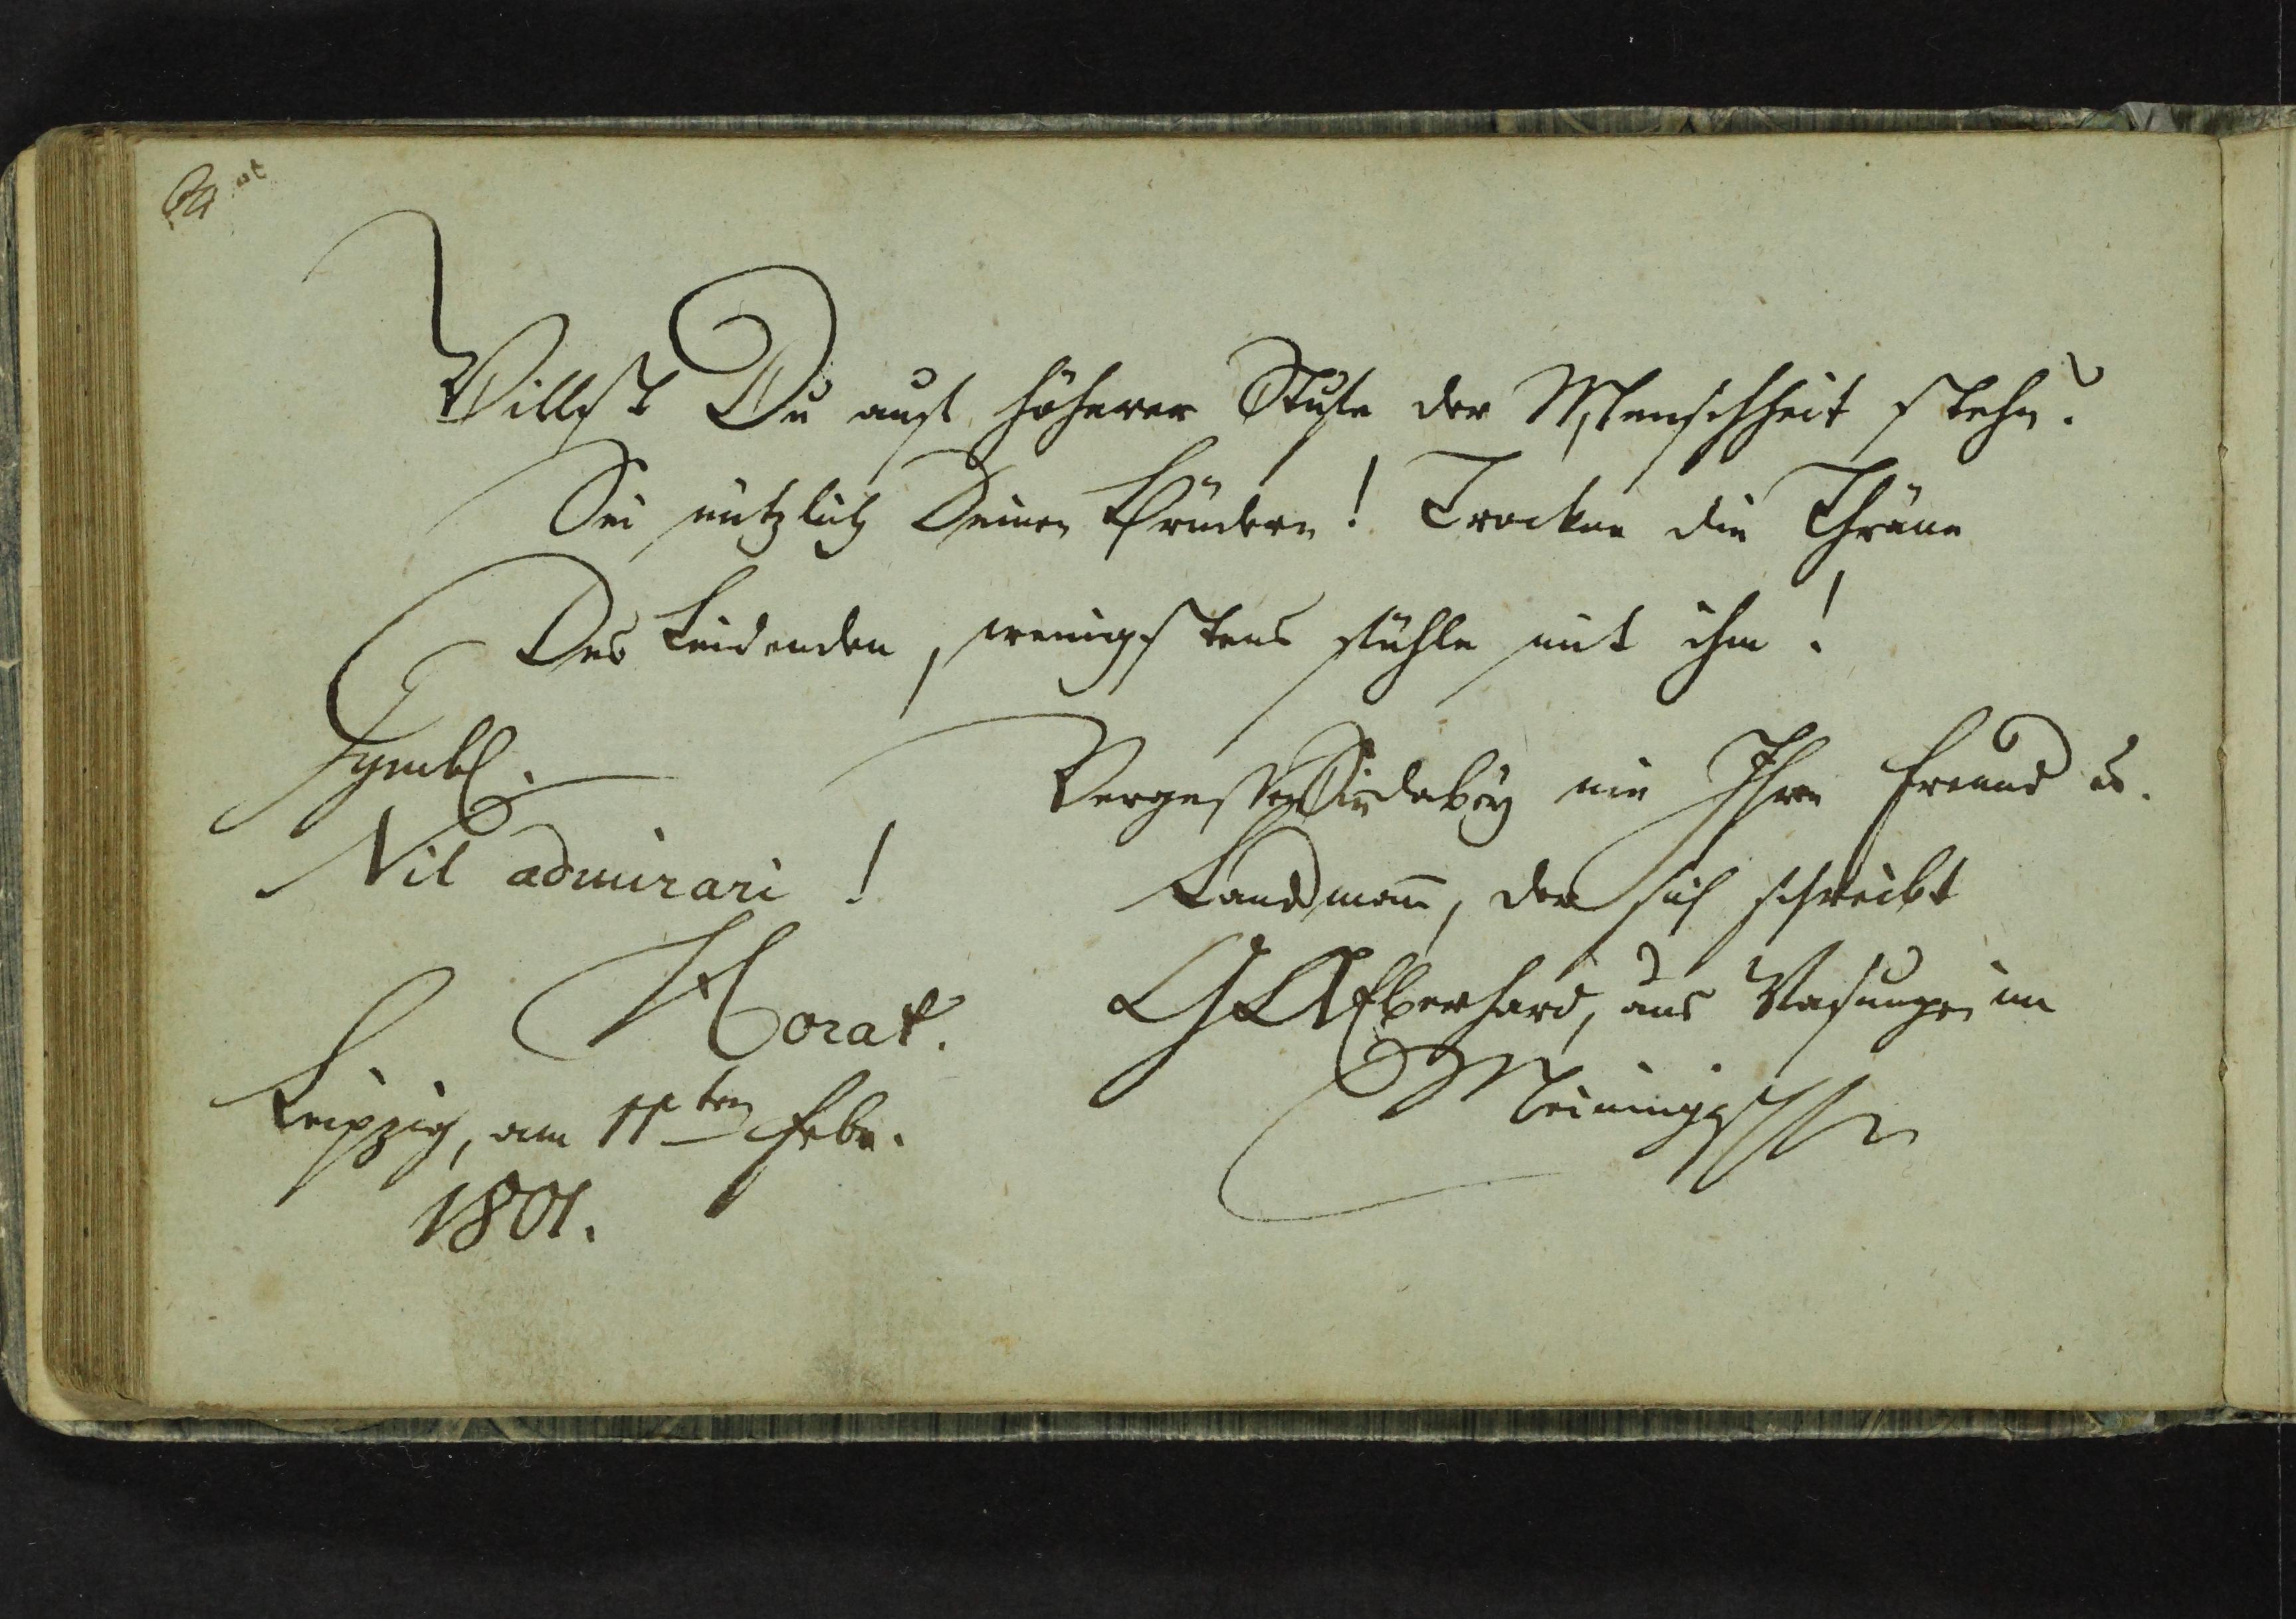 Willst Du auf höherer Stufe der Menschheit stehn?
Sei nützlich Deinen Brüdern! Trockne die Thräne
Des Leidenden, wenigstens fühle mit ihm!
Symbl.
Nil admirari!
Horat.
Leipzig, am 11ten Febr.
1801.
Vergessen Sie dabey nie Ihren Freund u.
Landsmann, der sich schreibt
Eberhard, aus Wasungen im
Meiningischen